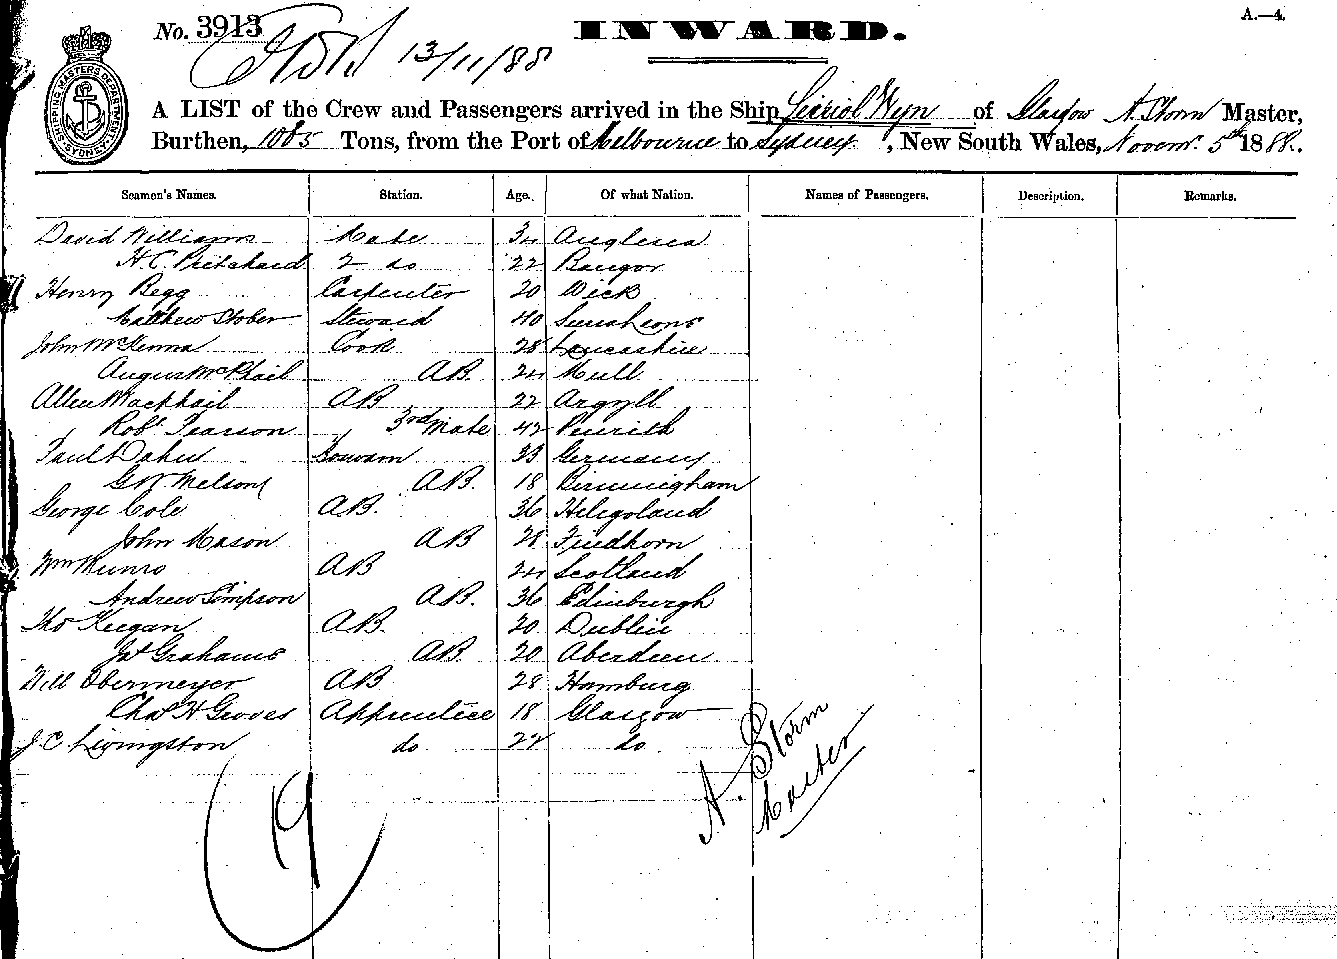 A.—4.
No. 3913
INWARD.
13/11/88
SHIPPING MASTERS DEPARTMENT SYDNEY
A LIST of the Crew and Passengers arrived in the Ship Seiriol Wyn of Glasgow A. Storm Master,
Burthen, 1085 Tons, from the Port of Melbourne to Sydney, New South Wales, Novemr. 5th 1888.
Seamen's Names. Station. Age. Of what Nation. Names of Passengers. Description. Remarks.
David Williams Mate 34 Anglesea
H. C. Pritchard 2 do 22 Bangor
Henry Begg Carpenter 20 Wick
Matthew Stober Steward 40
John McKenna Cook 28 Lancashire
Angus McPhail A.B. 24 Mull
Allen Macphail AB 22 Argyll
Robt. Pearson 3rd Mate 42 Penrith
Paul Dahn 23 Germany
G W Melson A.B. 18 Birmingham
George Cole A.B. 36 Heligoland
John Mason AB 28 Findhorn
Wm Munro AB 24 Scotland
Andrew Simpson A.B. 36 Edinburgh
Tho Keegan A.B. 20 Dublin
Jas Grahams AB. 20 Aberdeen
Will Obermeyer AB 28 Hamburg
Chas H Groves Apprentice 18 Glasgow
J. C Livingston do 22 do
19
A. Storm
Master